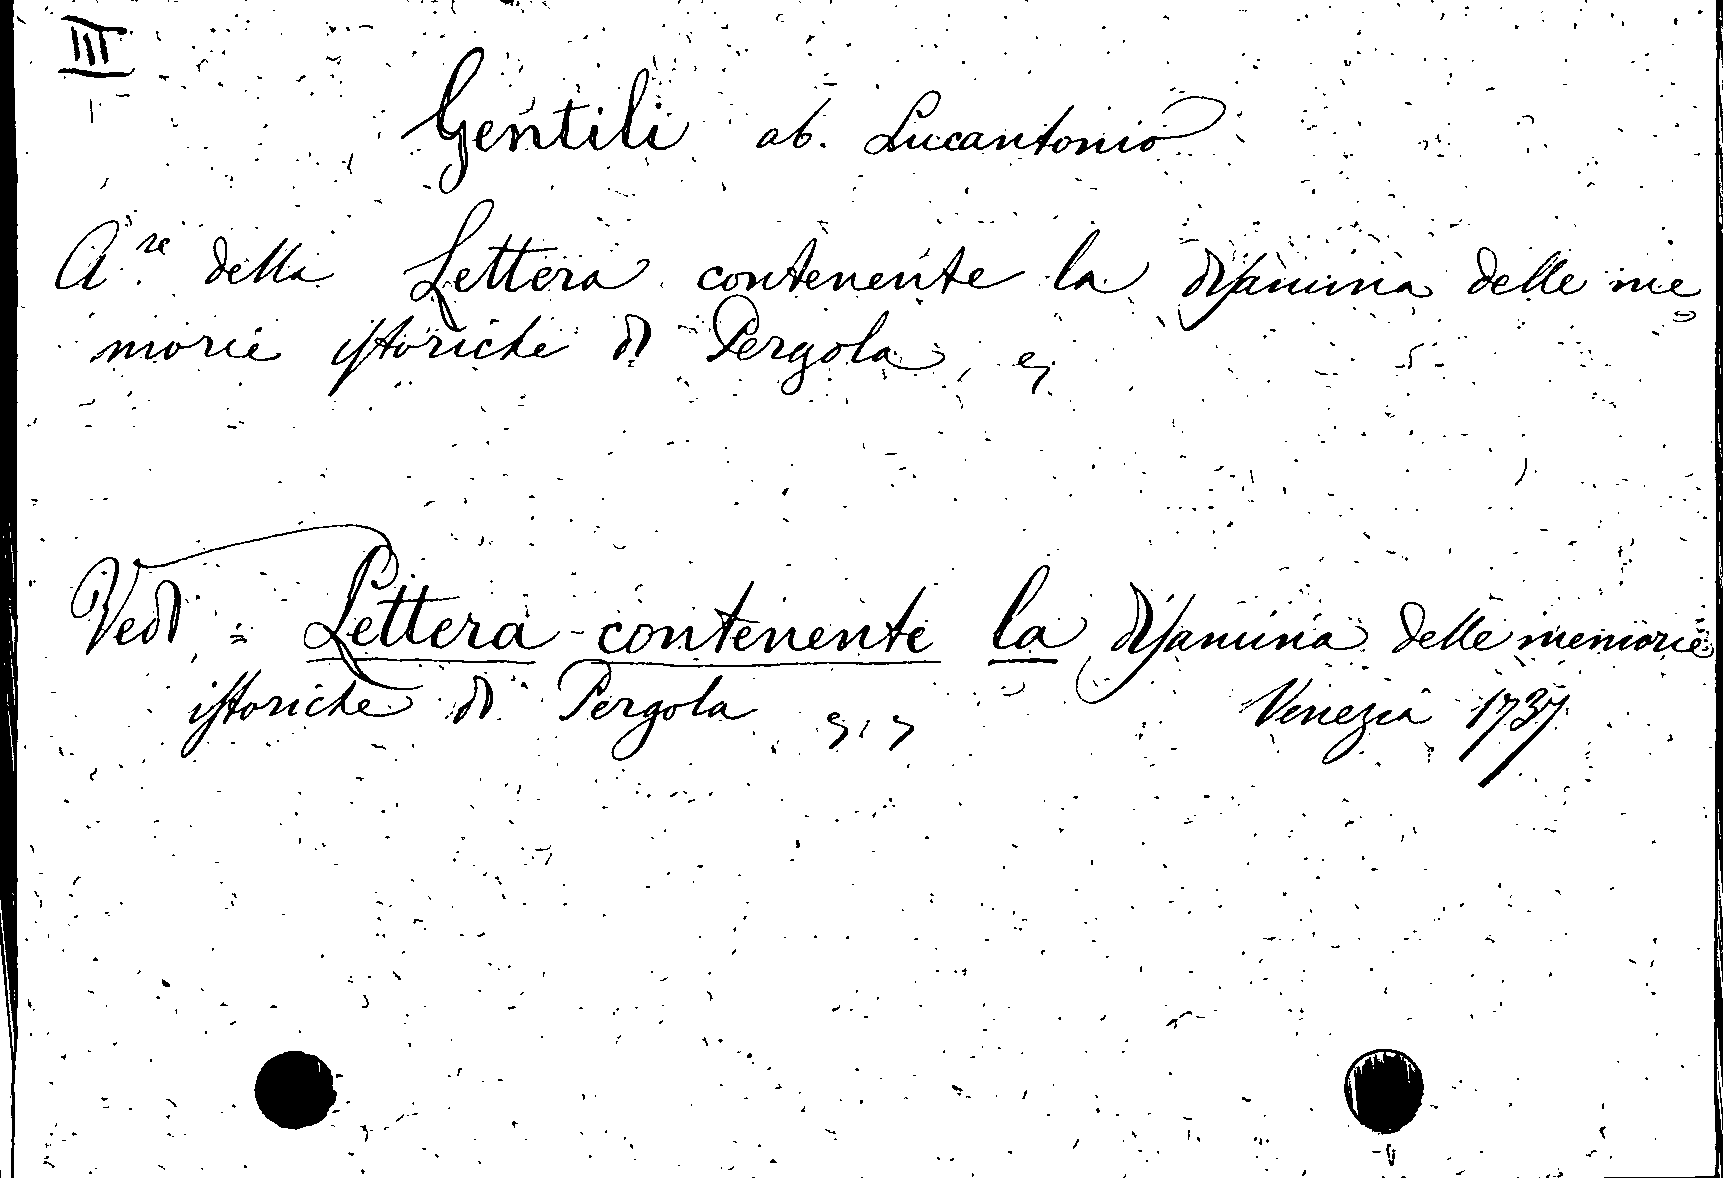 III
Gentili ab. Lucantonio
A.re della Lettera contenente la disamina delle me
morie istoriche di Pergola,
Vedi = Lettera contenente la disamina delle memorie
istoriche di Pergola Venezia 1737.